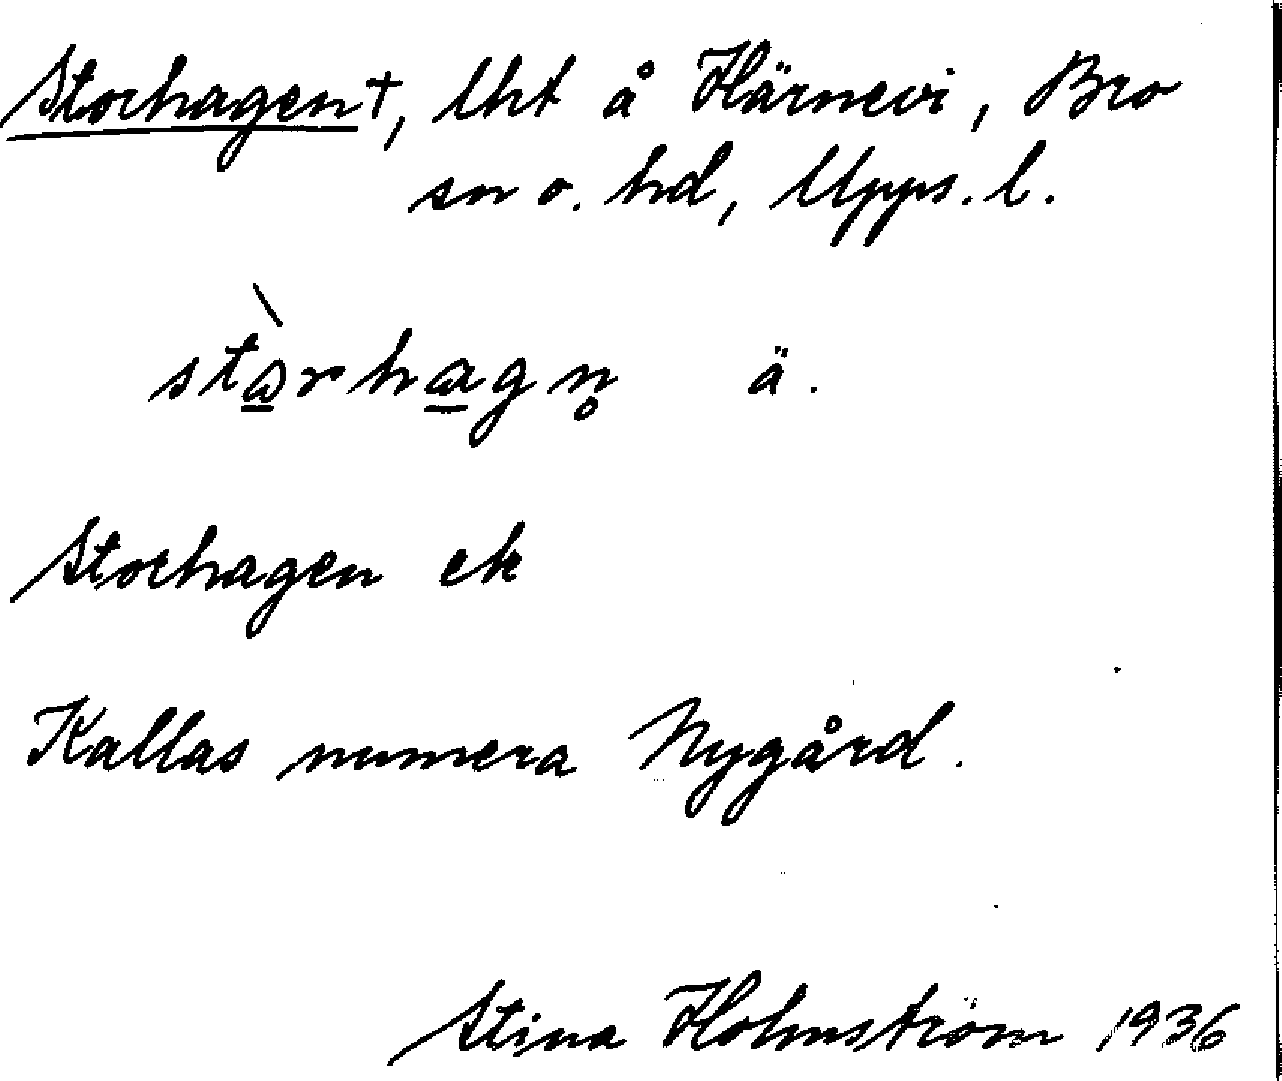 Storhagen†, lht å Härnevi, Bro
sn o. hd, Upps. l.
stòrhagn̥ ä.
Storhagen ek
Kallas numera Nygård.
Stina Holmström 1936